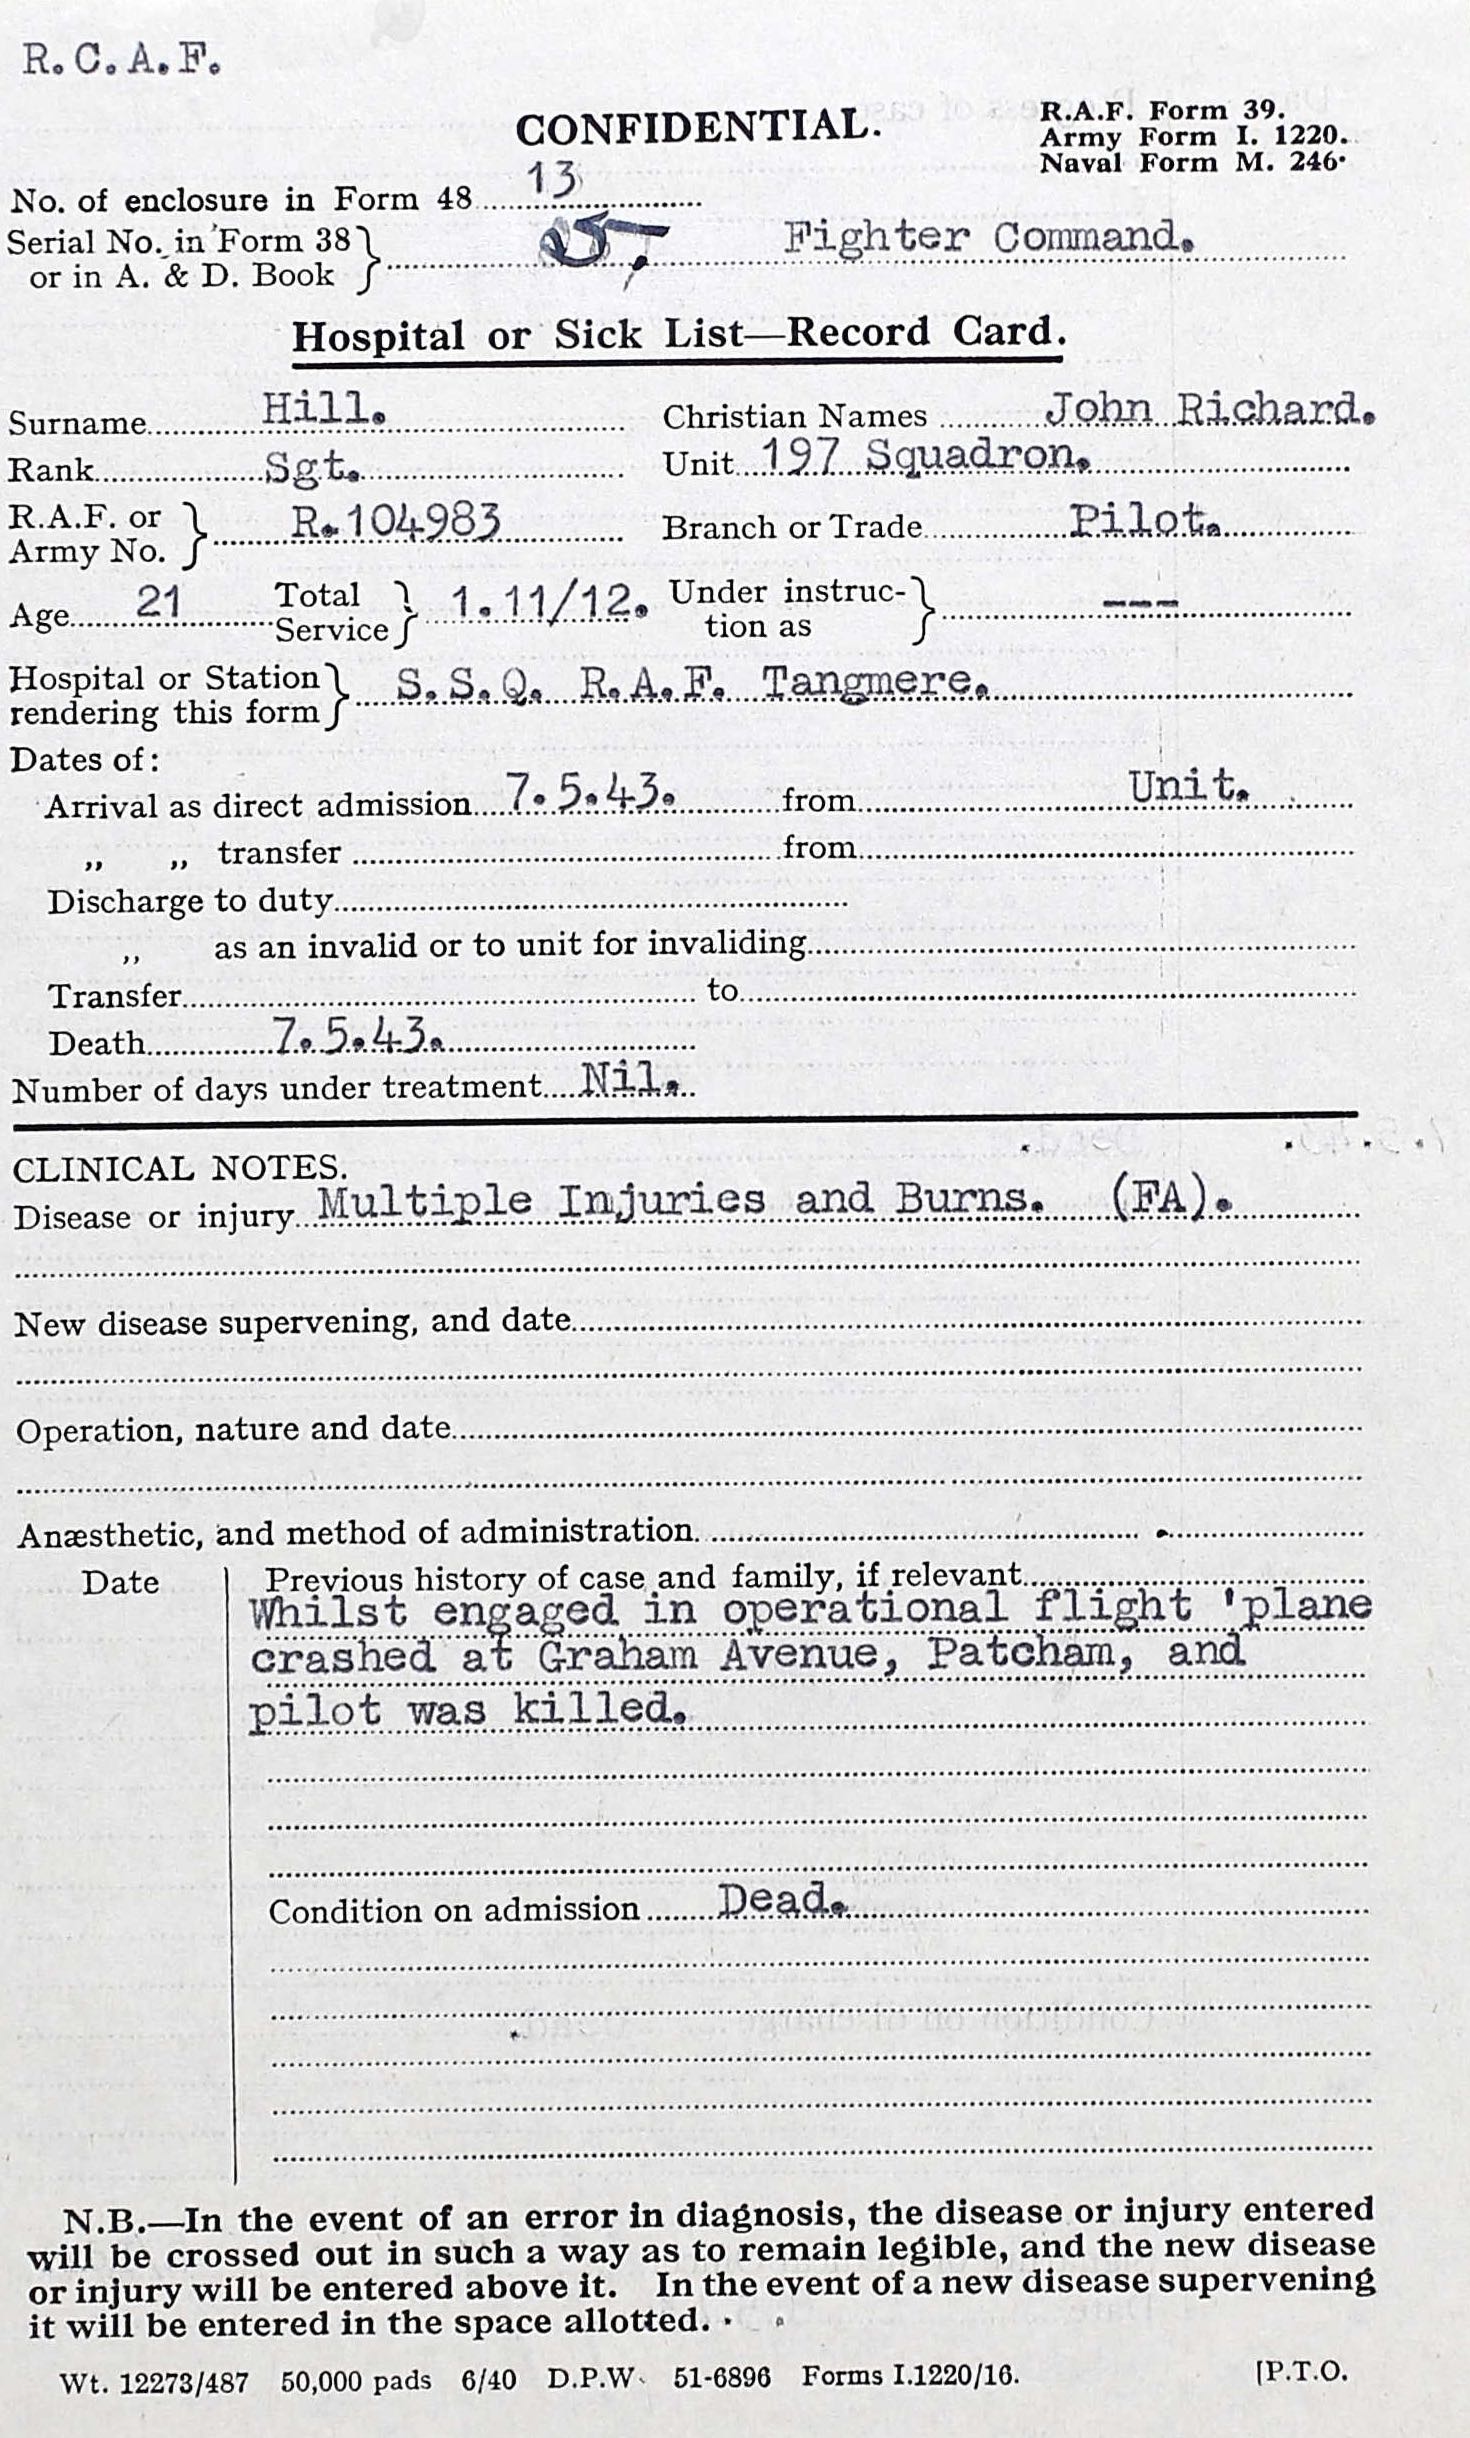 R.C.A.F.
CONFIDENTIAL.
R.A.F. Form 39.
Army Form I. 1220.
Naval Form M. 246.
No. of enclosure in Form 48 13
Serial No. in Form 38 or in A. & D. Book Fighter Command.
Hospital or Sick List—Record Card.
Surname Hill. Christian Names John Richard.
Rank Sgt. Unit 197 Squadron.
R.A.F. or Army No. R.104983 Branch or Trade Pilot.
Age 21 Total Service 1.11/12. Under instruc-tion as ---
Hospital or Station rendering this form S.S.Q. R.A.F. Tangmere.
Dates of:
Arrival as direct admission 7.5.43. from Unit.
„ „ transfer from
Discharge to duty
„ as an invalid or to unit for invaliding
Transfer to
Death 7.5.43.
Number of days under treatment Nil.
CLINICAL NOTES.
Disease or injury Multiple Injuries and Burns. (FA).
New disease supervening, and date
Operation, nature and date
Anæsthetic, and method of administration.
Date Previous history of case and family, if relevant
Whilst engaged in operational flight 'plane
crashed at Graham Avenue, Patcham, and
pilot was killed.
Condition on admission Dead.
N.B.—In the event of an error in diagnosis, the disease or injury entered
will be crossed out in such a way as to remain legible, and the new disease
or injury will be entered above it. In the event of a new disease supervening
it will be entered in the space allotted.
Wt. 12273/487 50,000 pads 6/40 D.P.W. 51-6896 Forms I.1220/16. [P.T.O.